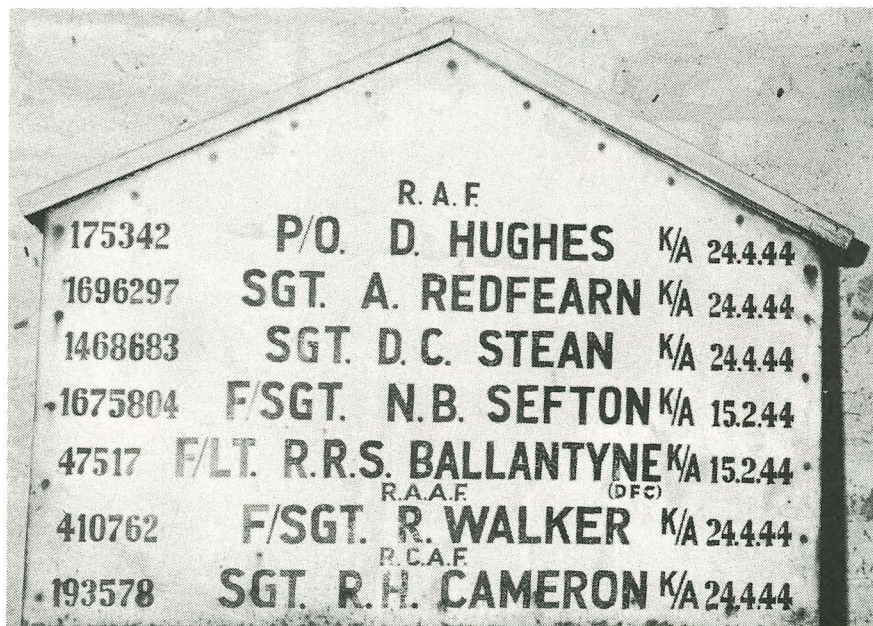 R. A. F.
175342 P/O. D. HUGHES K/A 24.4.44
1696297 SGT. A. REDFEARN K/A 24.4.44
1468683 SGT. D.C. STEAN K/A 24.4.44
1675804 F/SGT. N.B. SEFTON K/A 15.2.44
47517 F/LT. R.R.S. BALLANTYNE K/A 15.2.44
R.A.A.F. (DFC)
410762 F/SGT. R. WALKER K/A 24.4.44
R.C.A.F.
193578 SGT. R.H. CAMERON K/A 24.4.44